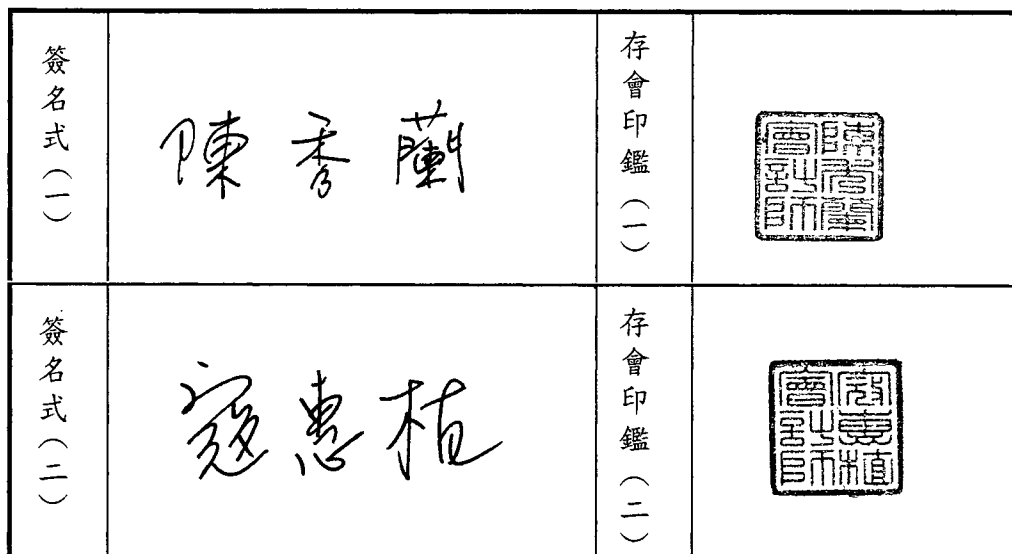 簽名式（一）
陳秀蘭
存會印鑑（一）
陳秀蘭會計師
簽名式（二）
寇惠植
存會印鑑（二）
寇惠植會計師